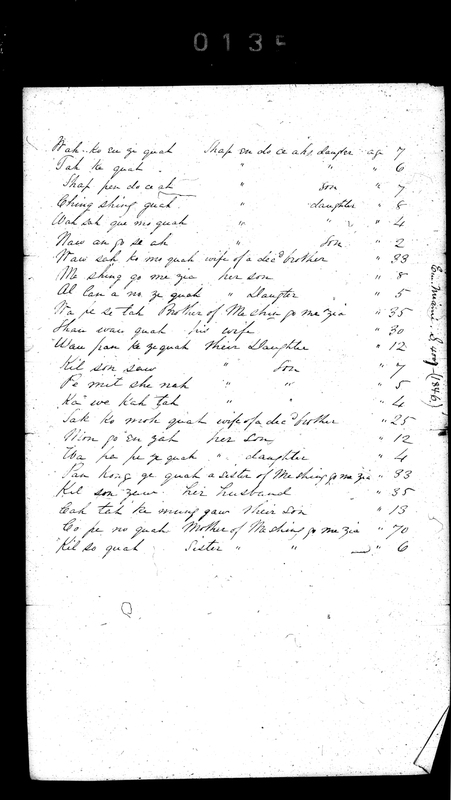 0135
Wah ko en ze quah Shap en do ce ah's daughter age 7
Tah ke quah " " " 6
Shap pen do ce ah " Son " 7
Ching shing quah " daughter " 8
Wah sah que mo quah " " " 4
Naw an go se ah " Son " 2
Waw sah ko mo quah wife of a decd brother " 33
Me shing go me zia her son " 8
Al lan a no ze quah " Daughter " 5
Wa pe se tah Brother of Me shin go me zia " 35
Shaw waw quah his wife " 30
Waw pan ke ze quah their Daughter " 12
Kil son saw " Son " 7
Pe mit che nah " " " 5
Ka we kah tah " " " 4
Sak ko moh quah wife of a decd brother " 25
Mon go en zah her Son " 12
Wa pa pe ze quah " daughter " 4
Pan kong ge quah a sister of Me shing go me zia " 33
Kil son zaw her husband " 35
Cah tah ke mung gaw their son " 13
Co pe no quah Mother of Me shing go me zia " 70
Kil so quah Sister " " " 6
(1846)